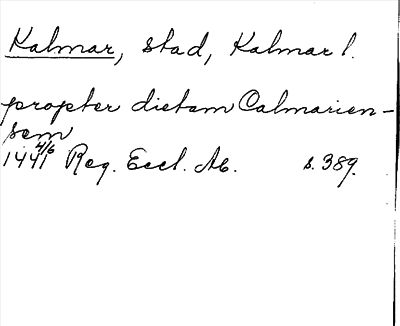 Kalmar, stad, Kalmar l.
propter dietam Calmarien-
sem
1441 4/6 Reg. Eccl. Ab. s. 389.